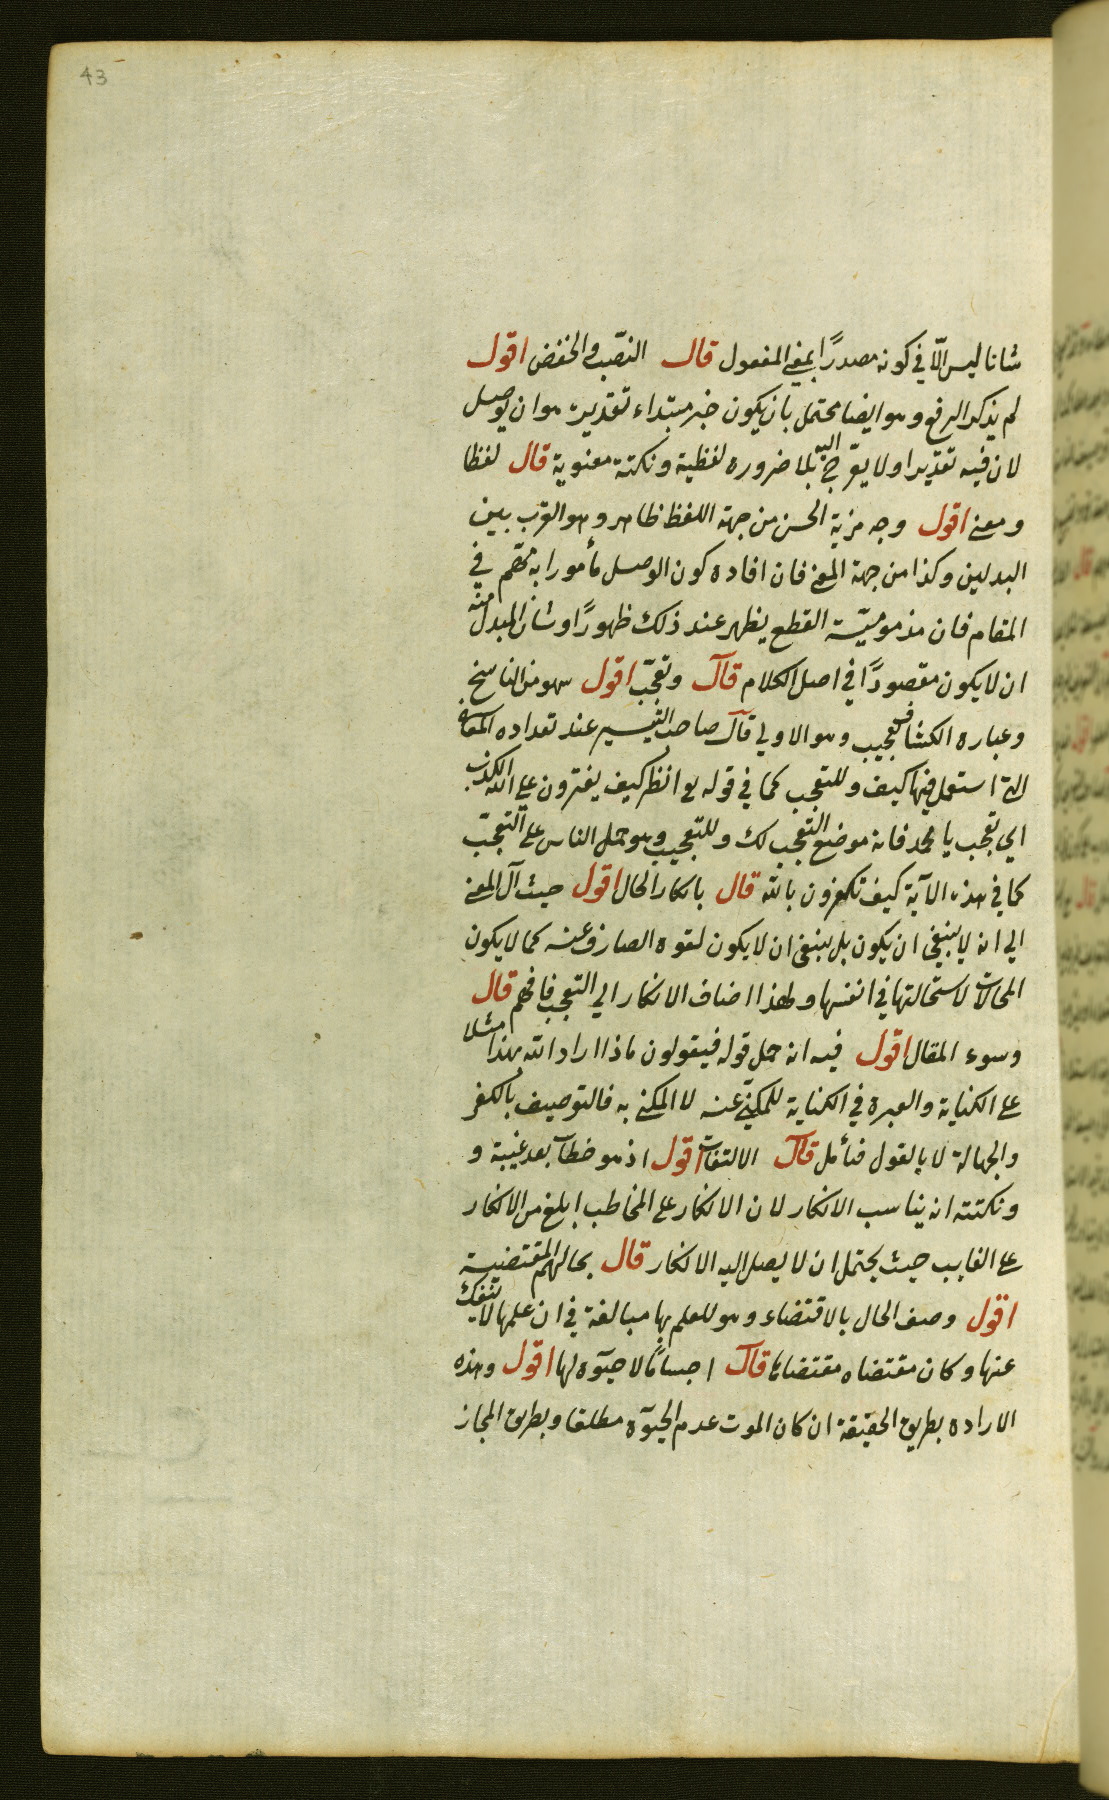 43
شانا ليس الّا في كونه مصدرًا بمعني المفعول قال النصب والخفض اقول
لم يذكر الرفع وهو ايضا محتمل بان يكون خبر مبتداء تقديره هو ان يوصل
لان فيه تقديرا ولا يعرّج اليه بلا ضروره لفظية ونكتة معنوية قال لفظا
ومعني اقول وجه مزية الحسن من جهة اللفظ ظاهر وهو القرب بين
البدلين وكذا من جهة المعني فان افاده كون الوصل مأمورا به مهّم في
المقام فان مذموميّة القطع يظهر عند ذلك ظهورًا وشان المبدل منه
ان لا يكون مقصودًا في اصل الكلام قال وتعجّب اقول سهو من الناسخ
وعباره الكشاف تعجيب وهو الاولي قال صاحب التيسير عند تعداده المعاني
التي استعمل فيها كيف وللتعجب كما في قوله تع انظر كيف يفترون علي الله الكذب
اي تعجب يا محمد فانه موضع التعجب لك وللتعجيب وهو حمل الناس علي التعجّب
كما في هذه الآية كيف تكفرون بالله قال بانكار الحال اقول حيث آل المعني
الي انه لا ينبغي ان يكون بل ينبغي ان لا يكون لقوه الصارف عنه كما لا يكون
المحالات لاستحالتها في انفسها ولهذا اضاف الانكار الي التعجب فافهم قال
وسوء المقال اقول فيه انه حمل قوله فيقولون ماذا اراد الله بهذا مثلا
علي الكناية والعبرة في الكناية للمكنيّ عنه لا المكني به فالتوصيف بالكفر
والجهالة لا بالقول فتأمل قال الالتفات اقول اذ هو خطاب بعد غيبة و
ونكتته انه يناسب الانكار لان الانكار علي المخاطب ابلغ من الانكار
علي الغايب حيث يحتمل ان لا يصل اليه الانكار قال بحالهم المقتضية
اقول وصف الحال بالاقتضاء وهو للعلم بها مبالغة في ان علمها لا ينفك
عنها وكان مقتضاه مقتضاها قال اجسامًا لا حيوة لها اقول وهذه
الاراده بطريق الحقيقة ان كان الموت عدم الحيوة مطلقا وبطريق المجاز